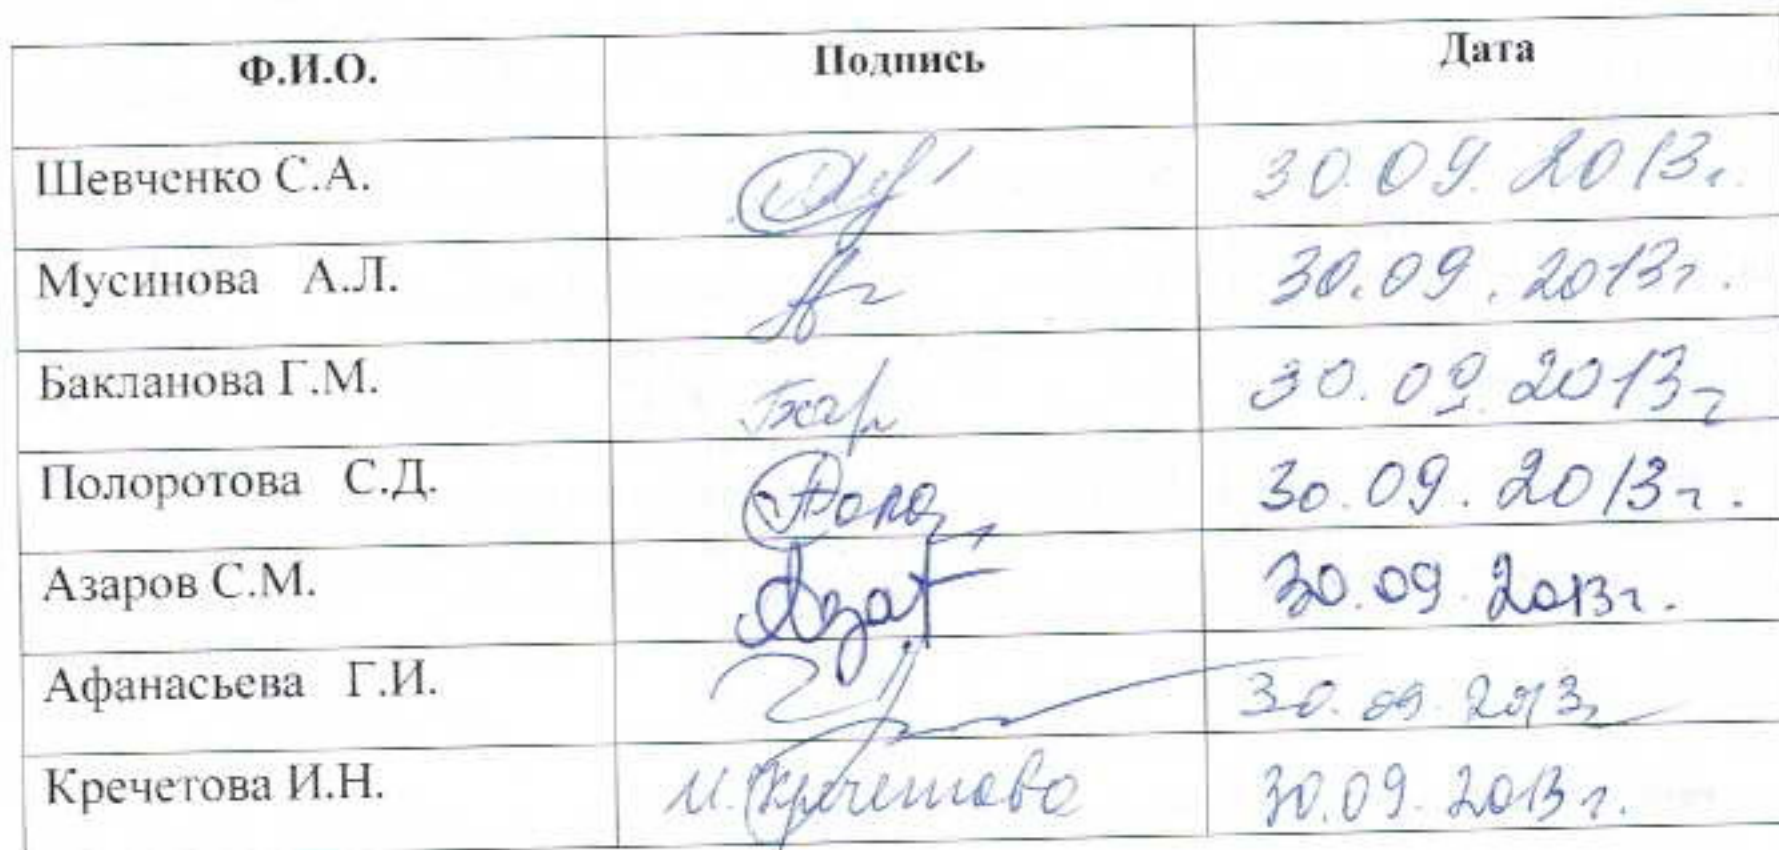 Ф.И.О. Подпись Дата
Шевченко С.А. 30.09.2013г.
Мусинова А.Л. 30.09.2013г.
Бакланова Г.М. 30.09.2013г
Полоротова С.Д. 30.09.2013г.
Азаров С.М. 30.09.2013г.
Афанасьева Г.И. 30.09.2013г
Кречетова И.Н. И.Кречетова 30.09.2013г.